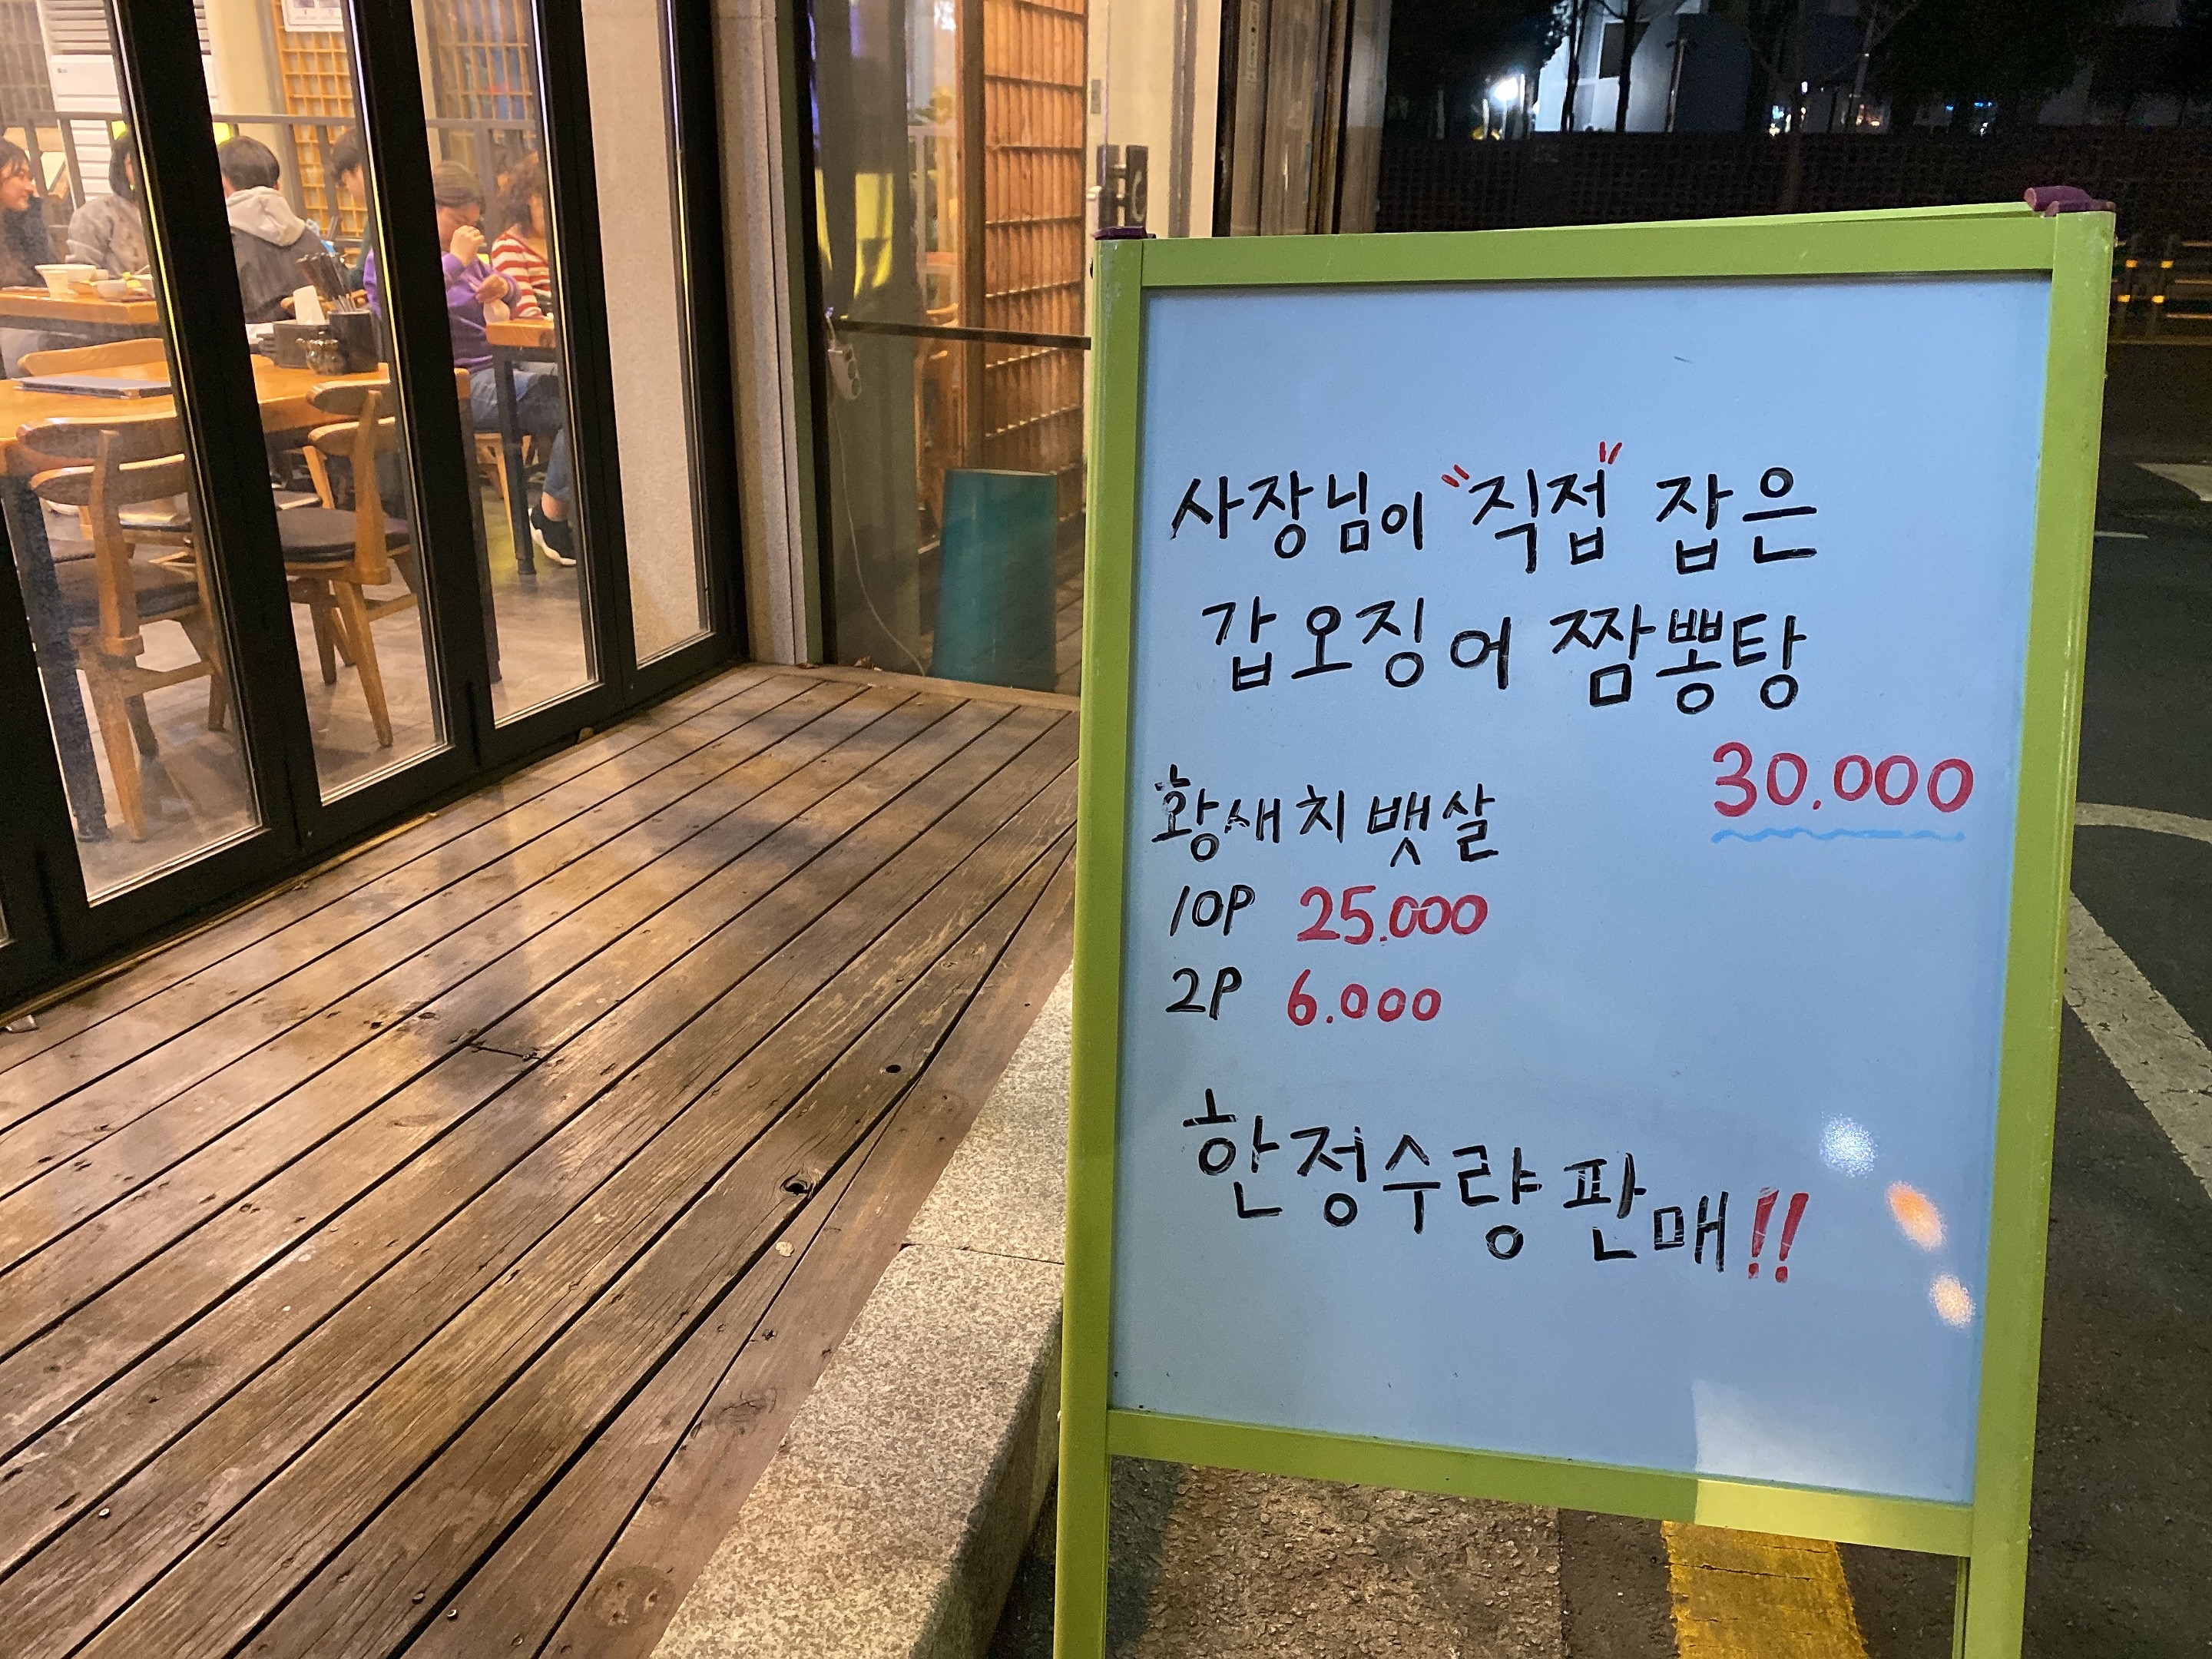 사장님이 "직접" 잡은
갑오징어 짬뽕탕
30.000
황새치 뱃살
10P 25.000
2P 6.000
한정수량 판매!!